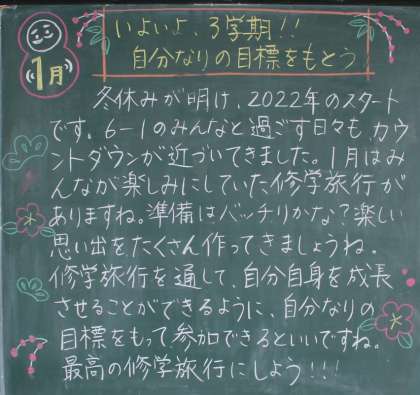 いよいよ、3学期!!
自分なりの目標をもとう
1月
冬休みが明け、2022年のスタート
です。6-1のみんなと過ごす日々も カウ
ントダウンが近づいてきました。1月はみ
んなが楽しみにしていた修学旅行が
ありますね。準備はバッチリかな?楽しい
思い出をたくさん作ってきましょうね。
修学旅行を通して、自分自身を成長
させることができるように、自分なりの
目標をもって参加できるといいですね。
最高の修学旅行にしよう!!!